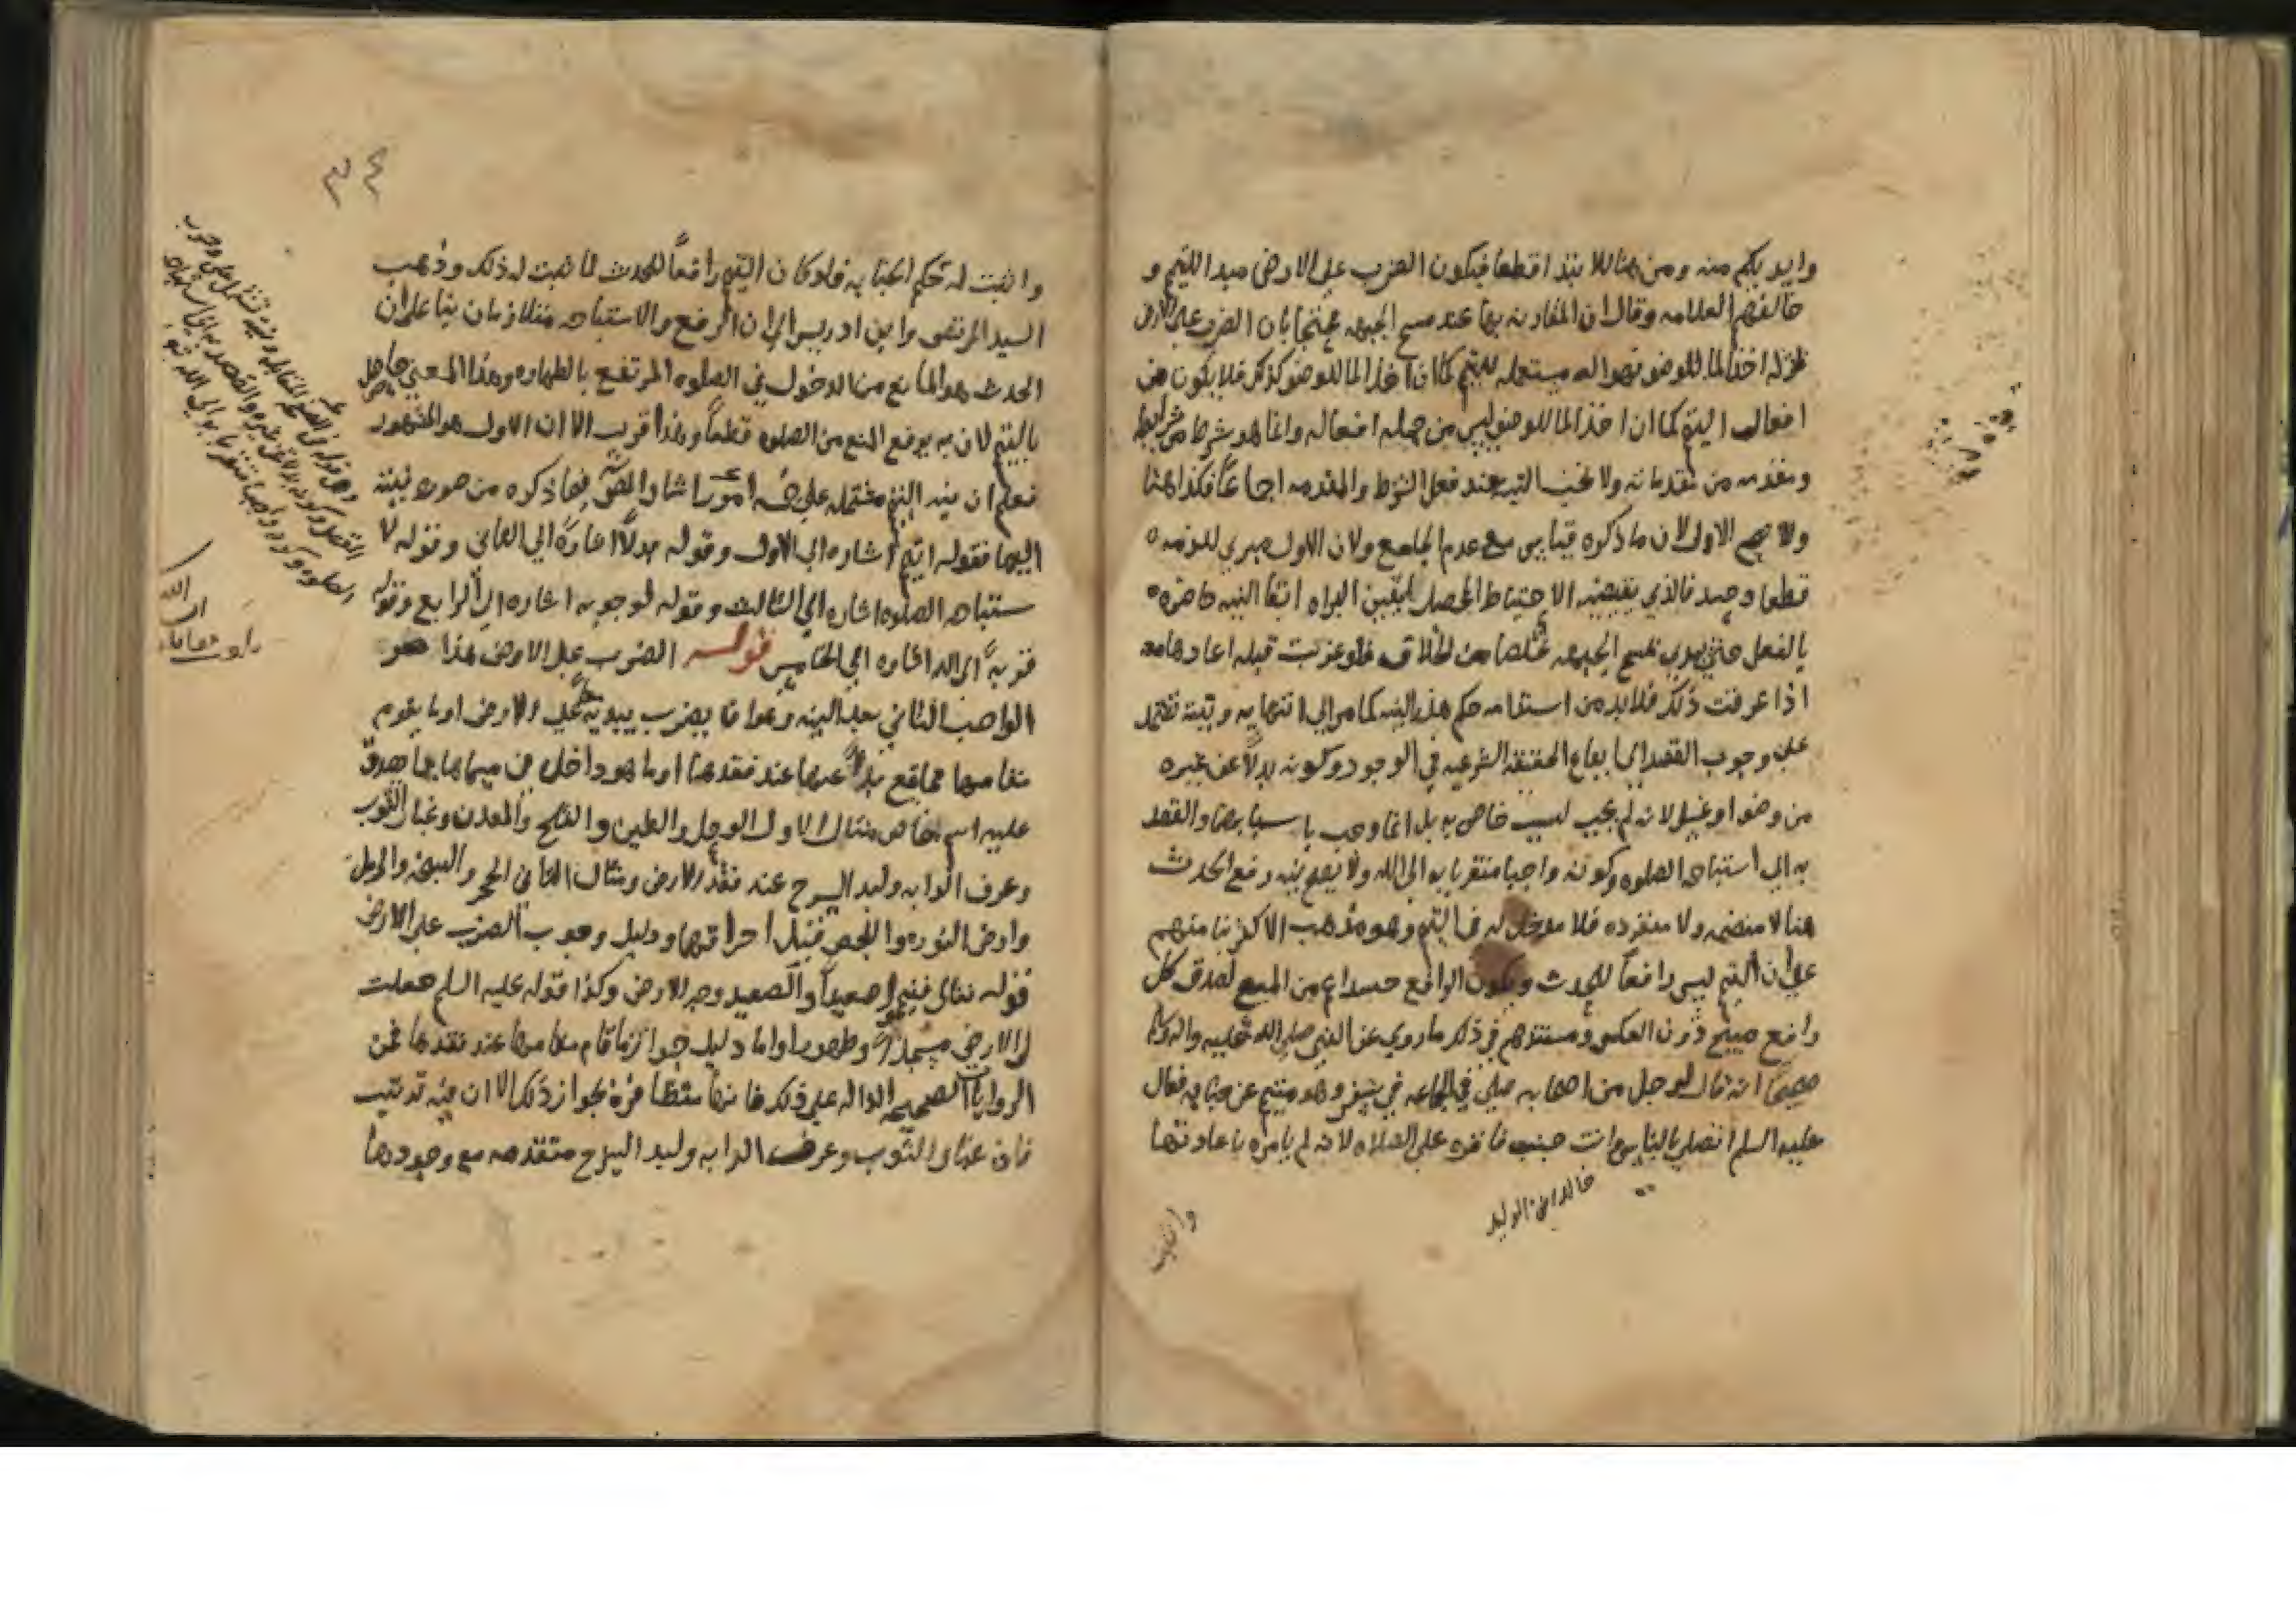 وايديكم منه ومن هنا للابتدا قطعا فيكون الضرب علي الارض مبدا التيمم و
خالفهم العلامه وقال ان المقارنه بها عند مسح الجبهه محتجا بان الضرب علي الارض
اخذ الما للوضو مستعمله للتيمم كما ان اخذ الما للوضو كذلك فلا يكون من
افعال التيمم كما ان اخذ الما للوضو ليس من جمله افعاله وانما هو شرط من شرايط
ومقدمه من مقدماته ولا تجب النيه عند فعل الشرط والمقدمه اجماعا فكذا هنا
والاصح الاول لان ما ذكروه قياس مع عدم الجامع ولان الاول مبري للذمه
قطعا وحينيذ فالذي يقتضيه الاحتياط المحصل ليقين البراه ابقا النيه حاضره
بالفعل حتي مسح الجبهه تخلصا من الخلاف فلو عزبت قبله اعادها معه
اذا عرفت ذلك فلا بد من استدامه حكم هذه النيه كما مر الي انتهايه ونيته تشتمل
علي وجوب القصد الي ايقاع الحقيقة الشرعيه في الوجود وكونه بدلا عن غيره
من وضوا وغسل لانه لم يجب لسبب خاص به بل انما وجب باسبابهما والقصد
به الي استباحه الصلوه وكونه واجبا متقربا به الي الله ولا يصح نيه رفع الحدث
هنا لا منضمه ولا منفرده فلا مدخل له في التيمم وهو مذهب الاكثر بنا منهم
علي ان التيمم ليس رافعا للحدث ويكون الرافع حينيذ اعم من المبيح لصدق كل
رافع مبيح دون العكس ومستندهم في ذلك ما روي عن النبي صلي الله عليه واله وسلم
صحيحا انه قال لرجل من اصحابه صلي في الجماعه في سفر وهو متيمم عن جنابه فقال
عليه السلم اتصلي بالناس وانت جنب فاقره علي الصلاه لانه لم يامره باعادتها
خالد ابن الوليد
واثبت
٣٤
واثبت له حكم الجنابه فلو كان التيمم رافعا للحدث لما ثبت له ذلك وذهب
السيد المرتضي وابن ادريس الي ان الرفع والاستباحه متلازمان بنا علي ان
الحدث هو المانع من الدخول في الصلوه المرتفع بالطهاره وهذا المعني حاصل
بالتيمم لان به يرفع المنع من الصلوه قطعا وهذا قريب الا ان الاول هو المشهور
فعلم ان نيه التيمم مشتمله علي خمسه امور اشار المص فيما ذكره من صوره نيته
اليها فقوله اتيمم اشاره الي الاول وقوله بدلا اشارة الي الثاني وقوله لا
ستباحه الصلوه اشاره الي الثالث وقوله لوجوبه اشاره الي الرابع وقوله
قربة الي الله اشاره الي الخامس قوله الضرب علي الارض هذا هو
الواجب الثاني بعد النيه وهو ان يضرب بيديه علي الارض او ما يقوم
مقامها مما يقع بدلا عنها عند فقدها او ما هو داخل في مسماها مما صدق
عليه اسم خاص مثال الاول الوحل والطين والثلج والمعدن وغبار الثوب
وعرف الدابه ولبد السرج عند فقد الارض ومثال الثاني الحجر والسبخه والرمل
وارض النوره والجص قبل احراقهما ودليل وجوب الضرب علي الارض
قوله تعالي فتيمموا صعيدا والصعيد وجه الارض وكذا قوله عليه السلم جعلت
لي الارض مسجدا وطهورا واما دليل جواز ما قام مقامها عند فقدها فمن
الروايات الصحيحه الداله علي ذلك فانها متظافرة بجواز ذلك الا ان فيه ترتيب
فان غبار الثوب وعرف الدابه ولبد السرج متقدمه مع وجودها